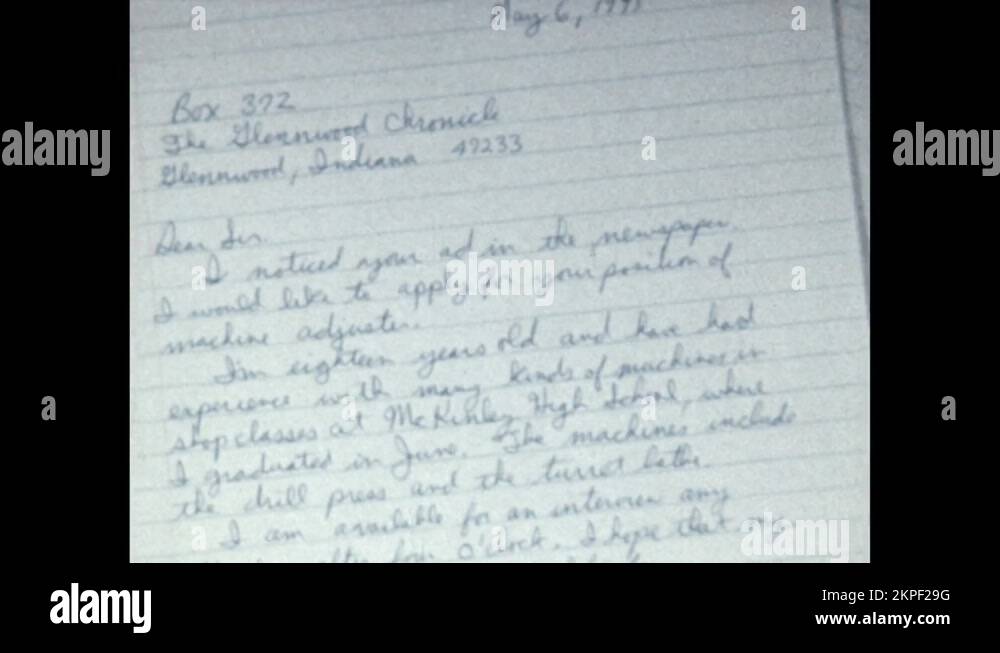 May 6,
Box 372
The Glennwood Chronicle
Glennwood, Indiana 47233
Dear Sir.
I noticed your ad in the newspaper.
I would like to apply for your position of
machine adjuster.
I'm eighteen years old and have had
experience with many kinds of machines in
shop classes at McKinley High School, where
I graduated in June. The machines include
the drill press and the turret lathe.
I am available for an interview any
after four O'clock. I hope that
alamy
Image ID: 2KPF29G
www.alamy.com